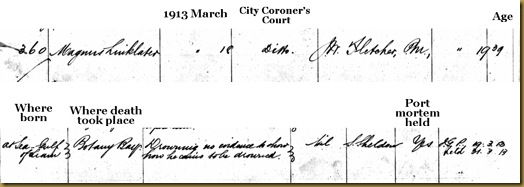 1913 March City Coroner's Court Age
260 Magnus Linklater " 18 Ditto. Fletcher, " 19
Where born Where death took place Port mortem held
at Sea Gulf of Siam Botany Bay. Drowning no evidence to show how he came to be drowned. Nil S. Sheldon Yes